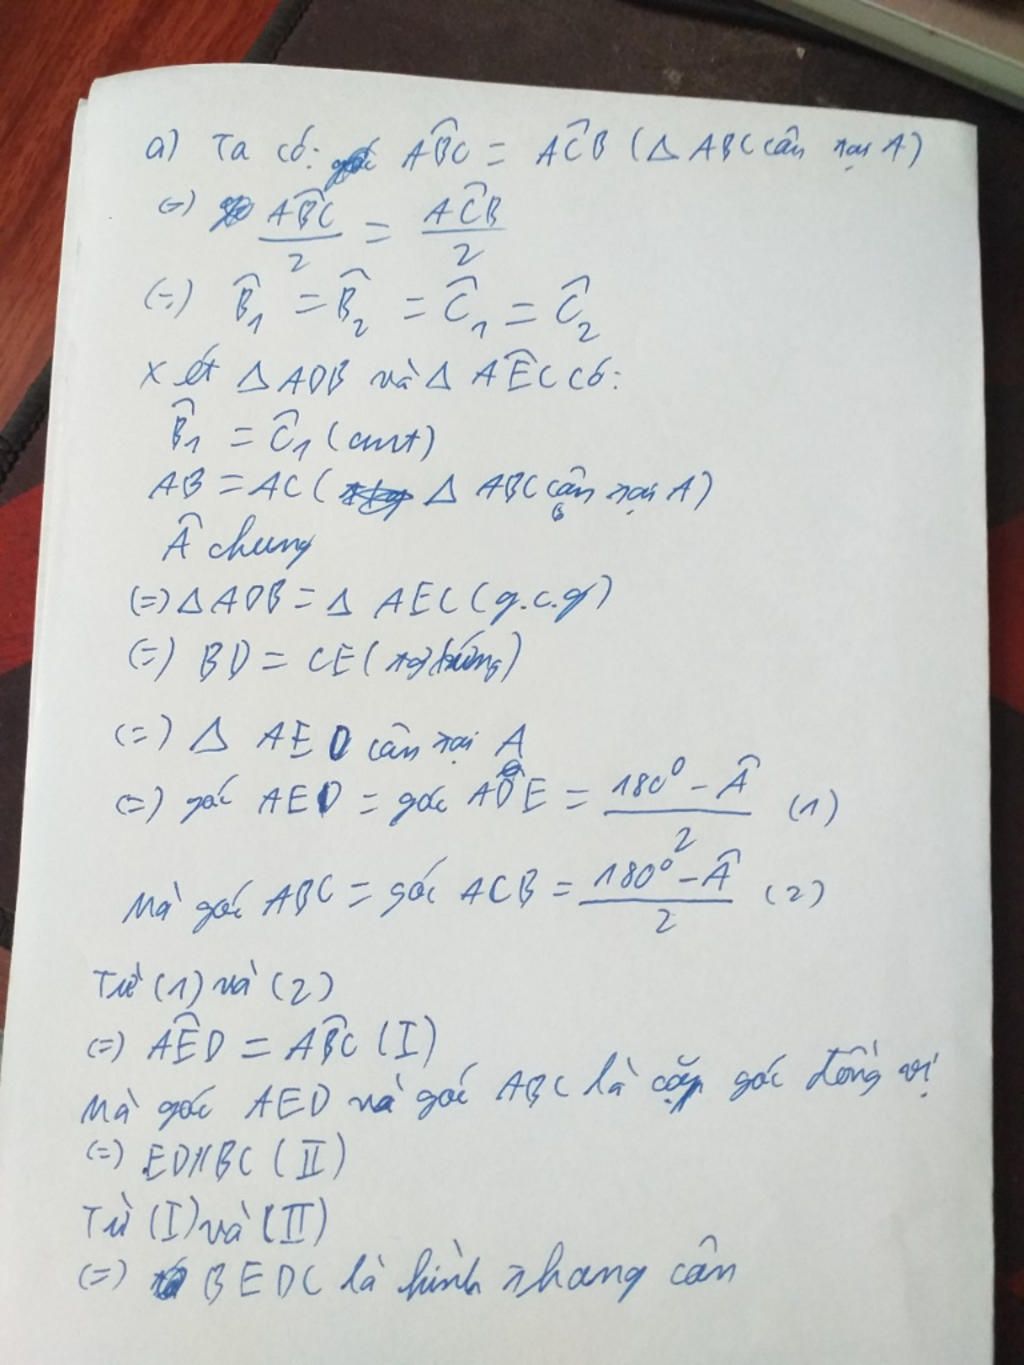 a) Ta có: ABC = ACB (Δ ABC cân tại A)
=) ABC/2 = ACB/2
(=) B̂1 = B̂2 = Ĉ1 = Ĉ2
Xét Δ ADB và Δ AEC có:
B̂1 = Ĉ1 (cmt)
AB = AC ( Δ ABC cân tại A)
Â chung
(=) Δ ADB = Δ AEC (g.c.g)
(=) BD = CE ( )
(=) Δ AED cân tại A
(=) góc AED = góc ADE = (180⁰ - Â)/2 (1)
Mà góc ABC = góc ACB = (180⁰ - Â)/2 (2)
Từ (1) và (2)
(=) AÊD = ABC (I)
Mà góc AED và góc ABC là cặp góc đồng vị
(=) ED//BC (II)
Từ (I) và (II)
(=) BEDC là hình thang cân